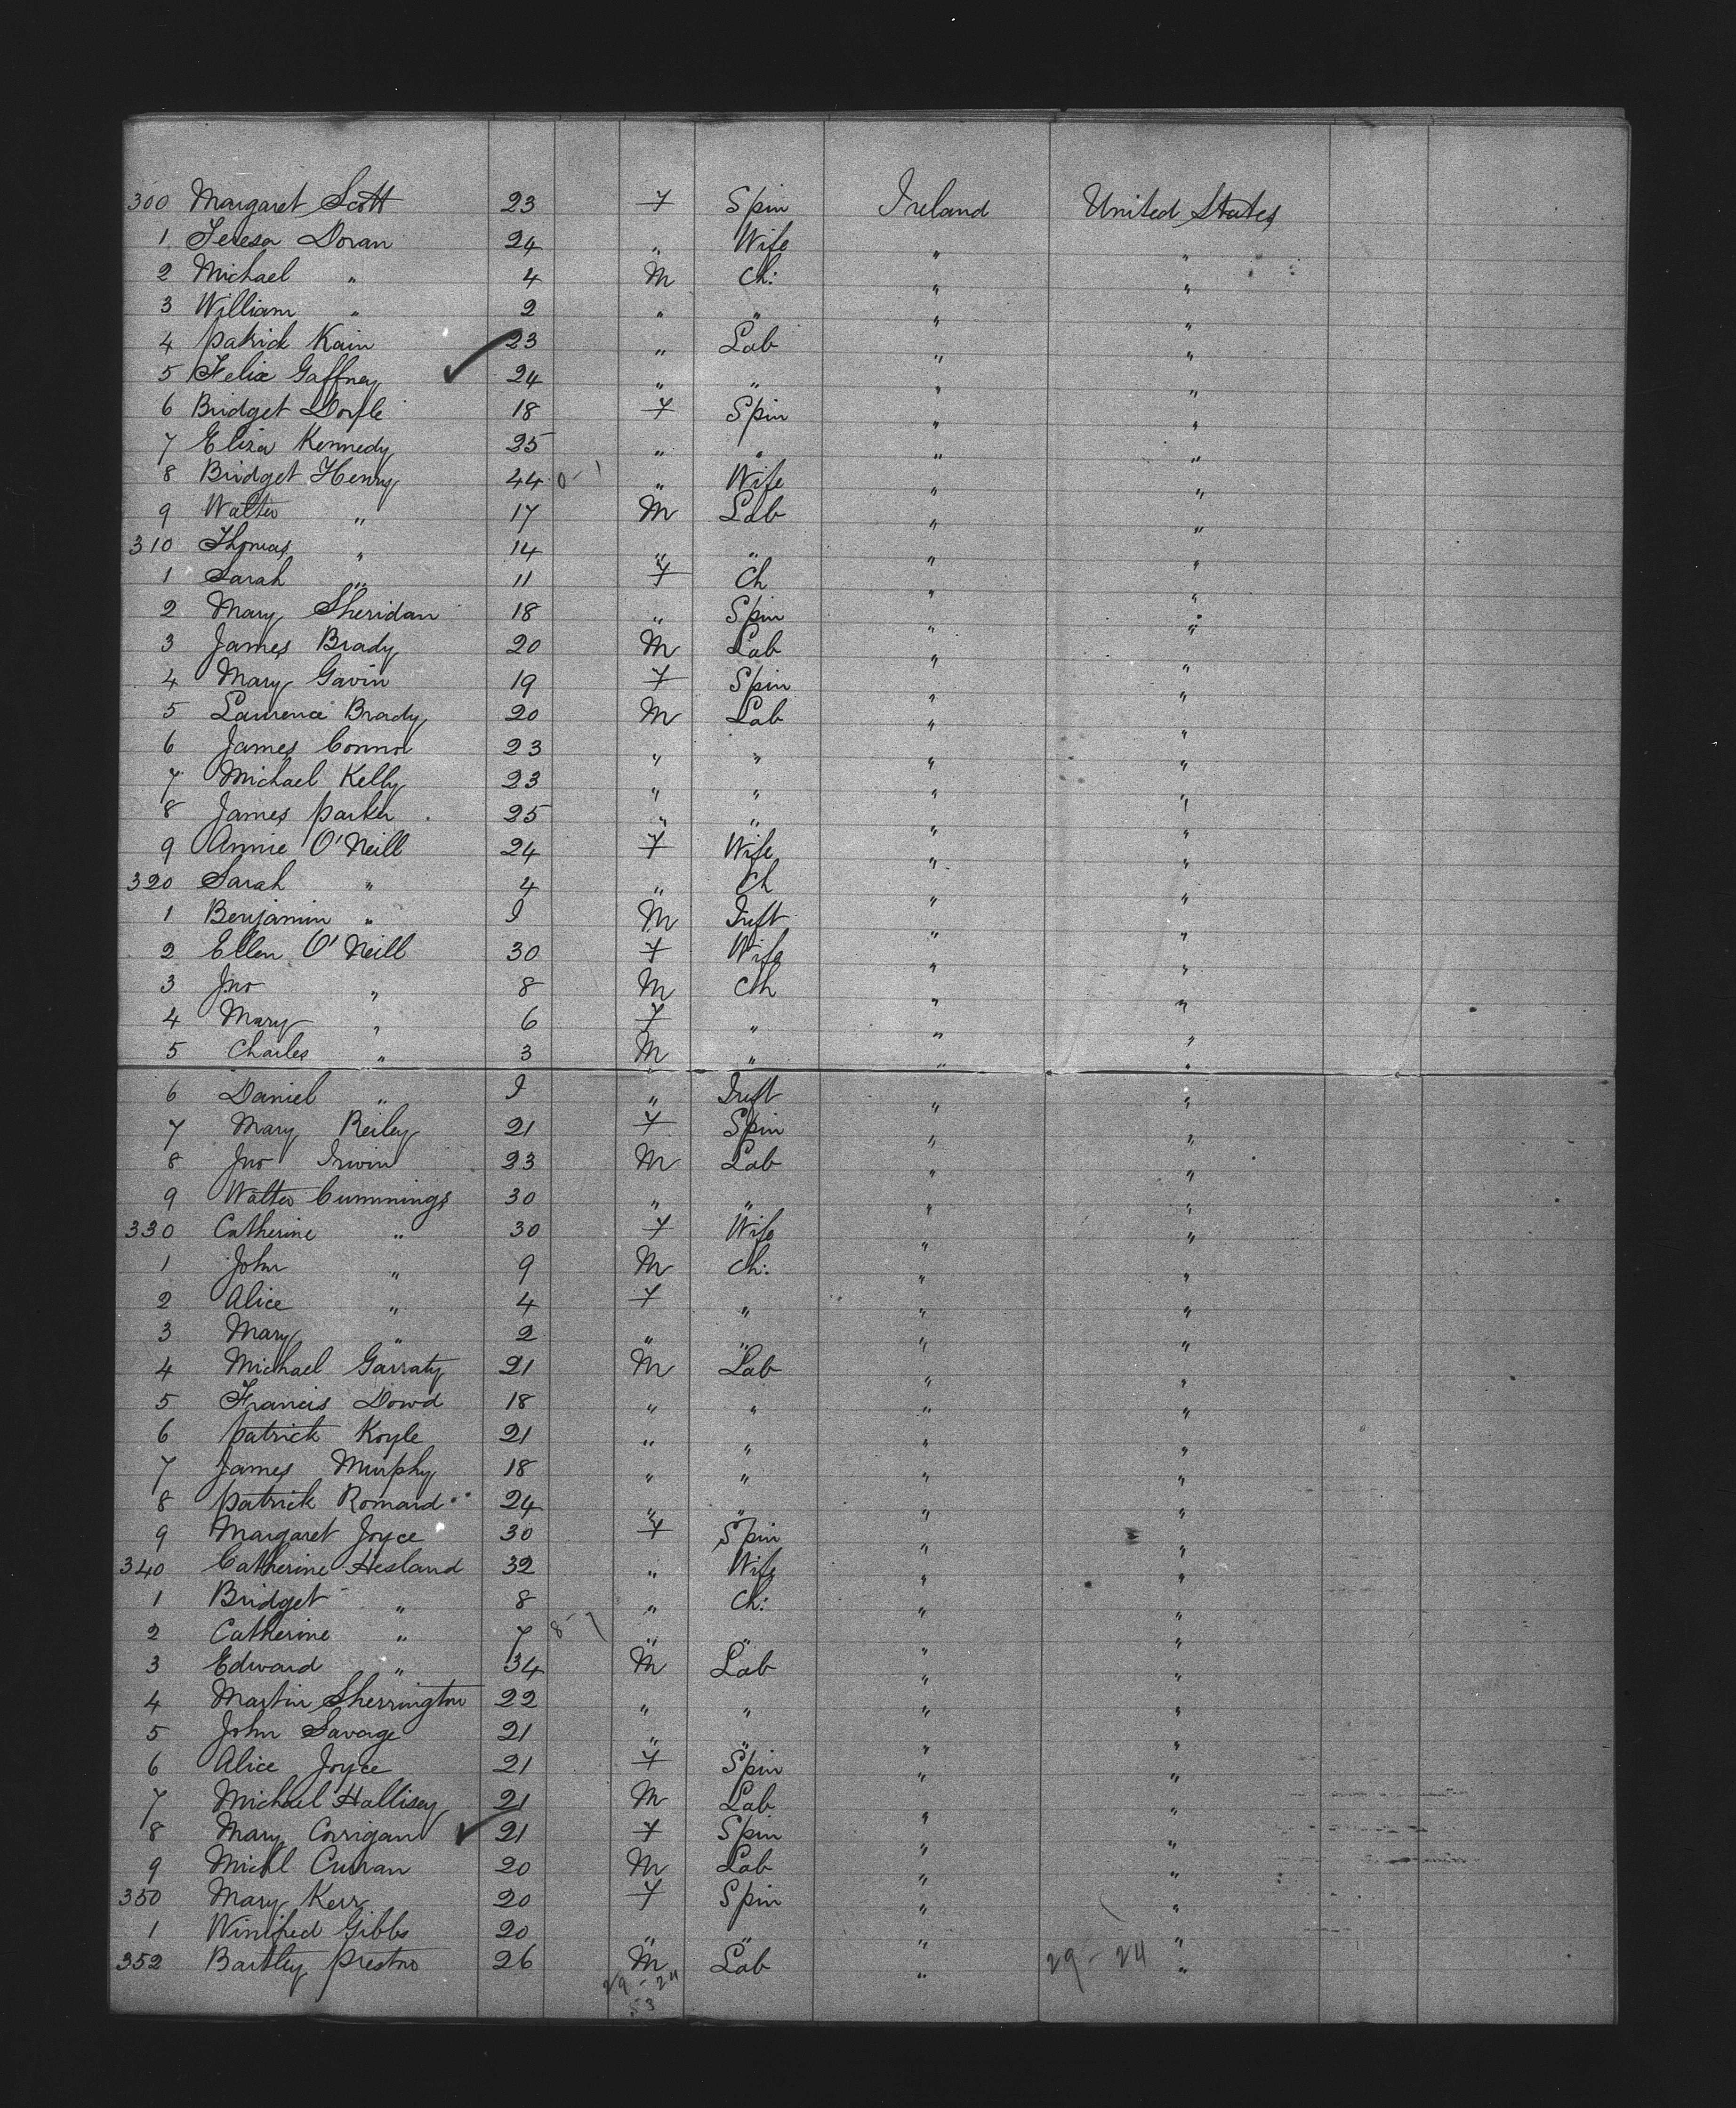 300 Margaret Scott 23 F Spin Ireland United States
1 Teresa Doran 24 " Wife " "
2 Michael " 4 M Ch: " "
3 William " 2 " " " "
4 Patrick Kain 23 " Lab " "
5 Felix Gaffney 24 " " " "
6 Bridget Doyle 18 F Spin " "
7 Eliza Kennedy 25 " " " "
8 Bridget Henry 44 0-1 " Wife " "
9 Walter " 17 M Lab " "
310 Thomas " 14 " " " "
1 Sarah " 11 F Ch " "
2 Mary Sheridan 18 " Spin " "
3 James Brady 20 M Lab " "
4 Mary Gavin 19 F Spin " "
5 Laurence Brady 20 M Lab " "
6 James Connor 23 " " " "
7 Michael Kelly 23 " " " "
8 James Parker 25 " " " "
9 Annie O'Neill 24 F Wife " "
320 Sarah " 4 " Ch " "
1 Benjamin " I M Inft " "
2 Ellen O'Neill 30 F Wife " "
3 Jno " 8 M Ch " "
4 Mary " 6 F " " "
5 Charles " 3 M " " "
6 Daniel " I " Inft " "
7 Mary Reiley 21 F Spin " "
8 Jno Irwin 23 M Lab " "
9 Walter Cummings 30 " " " "
330 Catherine " 30 F Wife " "
1 John " 9 M Ch: " "
2 Alice " 4 F " " "
3 Mary " 2 " " " "
4 Michael Garraty 21 M Lab " "
5 Francis Dowd 18 " " " "
6 Patrick Koyle 21 " " " "
7 James Murphy 18 " " " "
8 Patrick Romard 24 " " " "
9 Margaret Joyce 30 F Spin " "
340 Catherine Hesland 32 " Wife " "
1 Bridget " 8 " Ch: " "
2 Catherine " 7 8-7 " " " "
3 Edward " 34 M Lab " "
4 Martin Sherrington 22 " " " "
5 John Savage 21 " " " "
6 Alice Joyce 21 F Spin " "
7 Michael Hallisey 21 M Lab " "
8 Mary Corrigan 21 F Spin " "
9 Michl Curran 20 M Lab " "
350 Mary Kerr 20 F Spin " "
1 Winifred Gibbs 20 " " " "
352 Bartley Preston 26 M Lab " 29-24 "
29-24
53